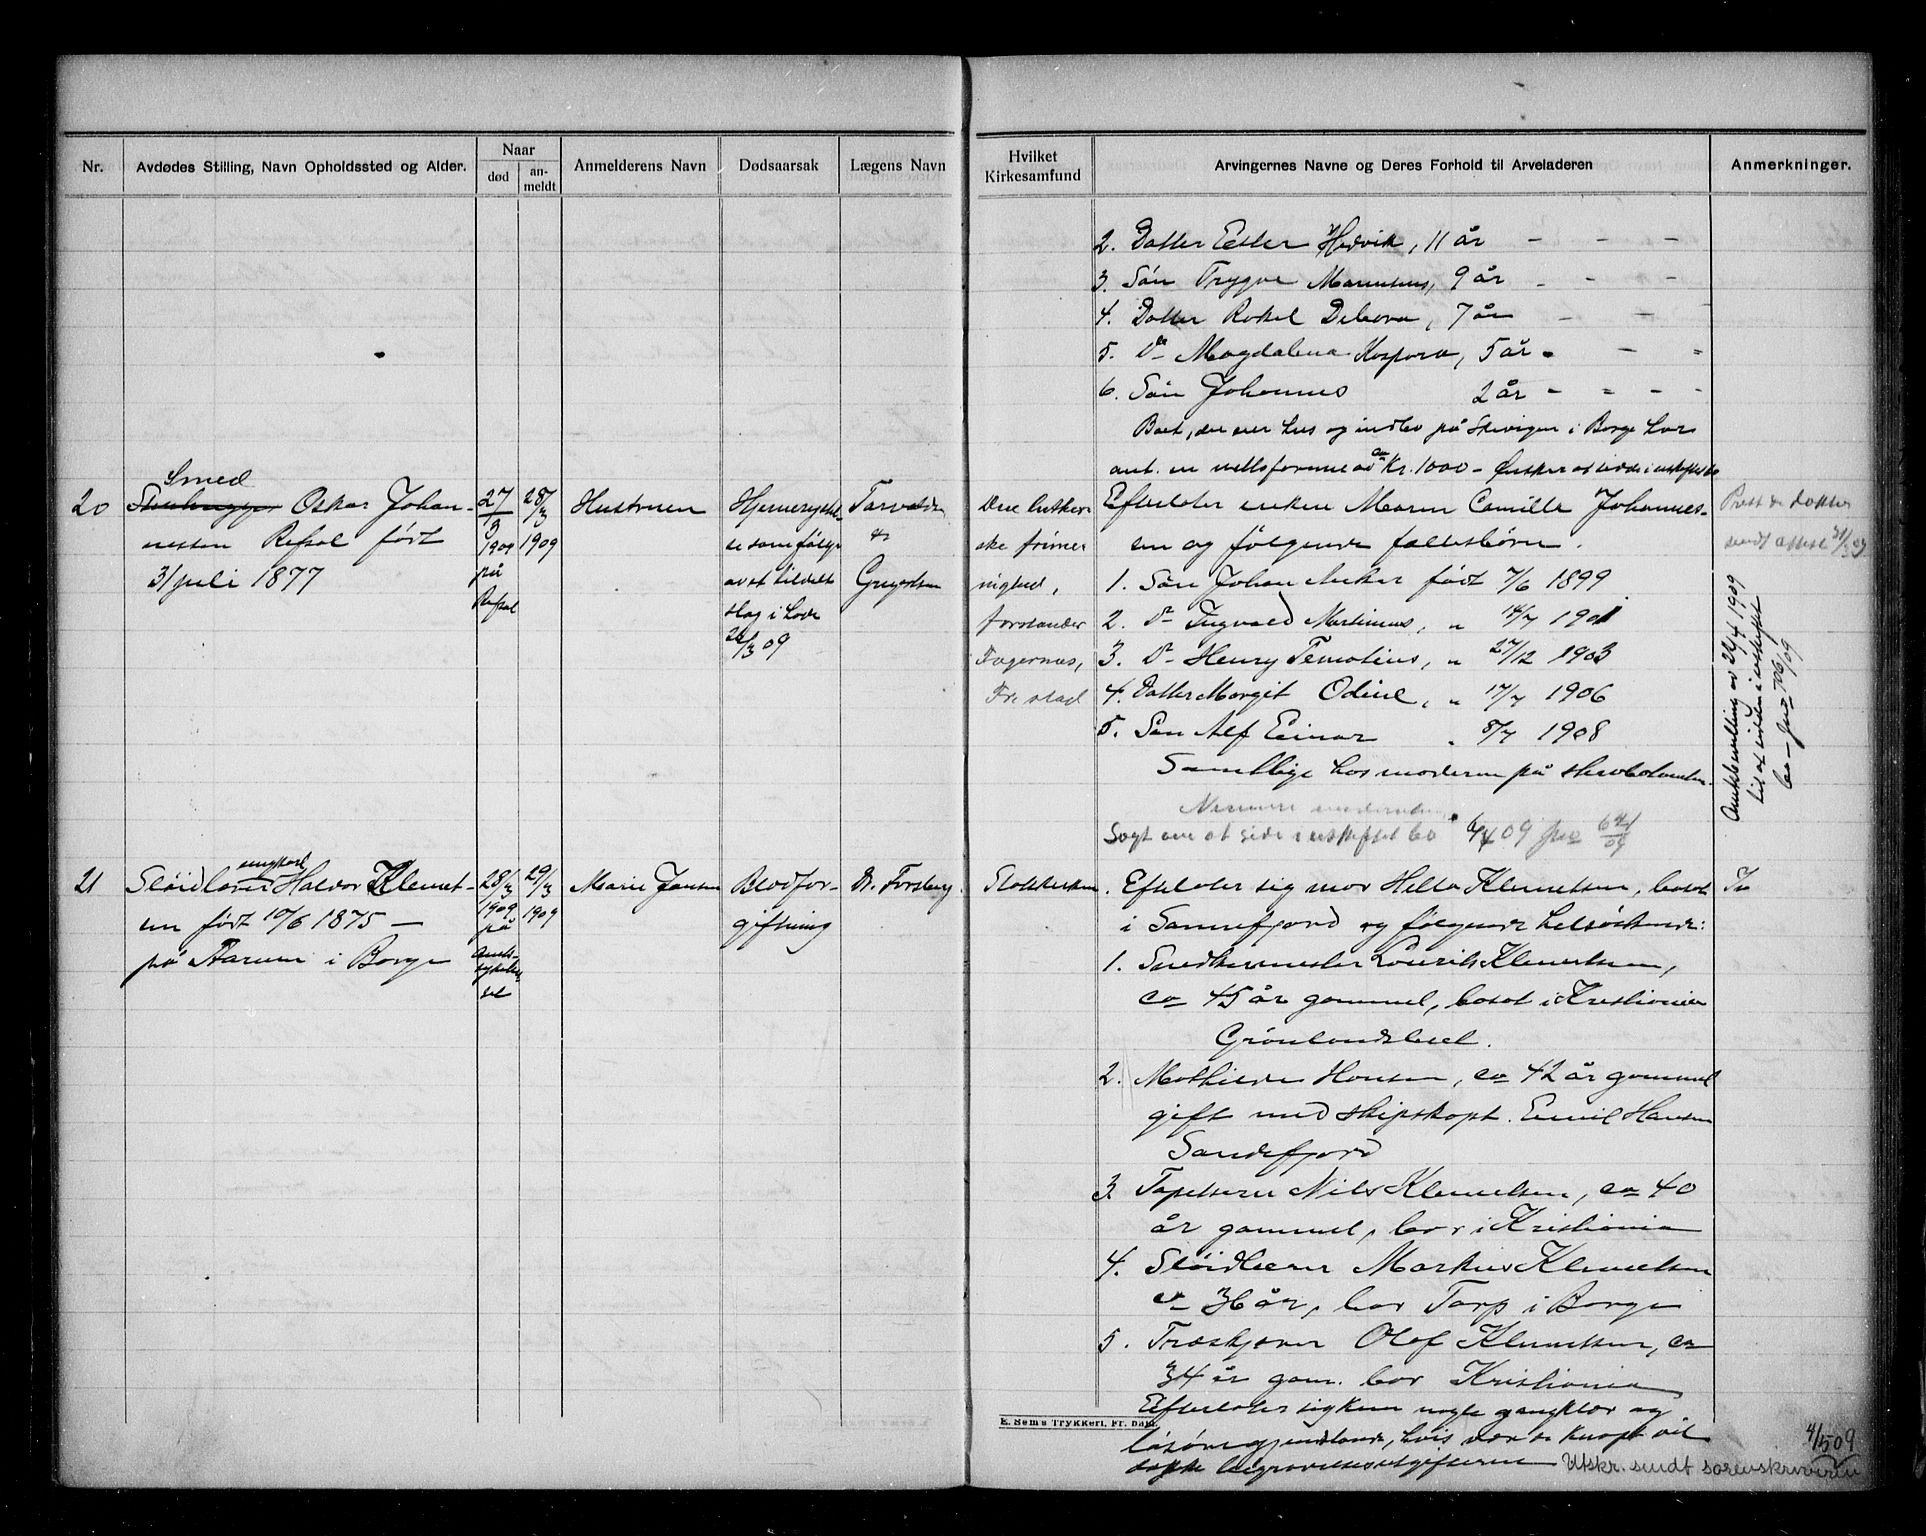 Nr.
Avdødes Stilling, Navn Opholdssted og Alder.
Naar
død
an-
meldt
Anmelderens Navn
Dødsaarsak
Lægens Navn
Hvilket
Kirkesamfund
Arvingernes Navne og Deres Forhold til Arveladeren
Anmerkninger.
2. Datter Ester Hedvik, 11 år - - -
3. Søn Trygve Marensius, 9 år - - -
4. Datter Rakel Debora, 7 år - -
5. Do Magdalena Kaspara, 5 år - - "
6. Søn Johannes 2 år - " - -
Boet, der eier hus og indbo på Skivigen i Borge har
ant. en nettoformue av ca Kr. 1000 - Ønsker at sidde i uskiftet bo
20
Smed
Stenhugger Oskar Johan-
nessen Refsal født
31 juli 1877
27/3
1909
på
Refsal
28/3
1909
Hustruen
Hjernerystel-
se som følge
av et tildelt
slag i hode
26/3 09
Tarvalden
&
Gregersen
Den luther-
ske frime-
nighed,
forstander
Fagernes,
Fr. stad
Efterlater enken Maren Camilla Johannes-
sen og følgende fællesbörn.
1. Søn Johan Anker født 7/6 1899
2. Do Ingvald Martinius, " 14/7 1901
3. Do Henry Temotius, " 27/12 1903
4. Datter Margit Odine, " 17/7 1906
5. Søn Alf Einar " 8/7 1908
Samtlige hos moderen på
Sogt om at side i uskiftet bo 6/4 09 jno 641/09
Prest & doktor
sendt attest 31/3 09
Amtsbevilling av 22/4 1909
til at sidde i uskiftet
bo - jno 706/09
21
Sløidlærer ungkarl Halvor Klemet-
sen født 10/6 1875 -
på Aarum i Borge
28/3
1909
på
Amts-
sykehu-
set
29/3
1909
Marie Jansen
Blodfor-
giftning
Dr. Forsberg.
Statskirken
Efterlater sig mor Helle Klemetsen, bosat
i Sannefjord og følgende helsøskende:
1. Snedkermester Lourits Klemetsen,
ca 45 år gammel, bosat i Kristiania
Grønlandsleret.
2. Mathilde Hansen, ca 42 år gammel
gift med skipskapt. Emil Hansen
Sandefjord
3. Tapetserer Nils Klemetsen, ca 40
år gammel, bor i Kristiania
4. Sløidlærer Markus Klemetsen
ca 36 år, bor Torp i Borge
5. Træskjærer Olaf Klemetsen, ca
34 år gam. bor Kristiania
Efterlater sig kun nogle gangklær og
løsøregjenstande, hvis værde knapt vil
dække begravelsesutgifterne
4/5 09
Utskr. sendt sorenskriveren
E. Sem's Trykkeri, Fr. hald.